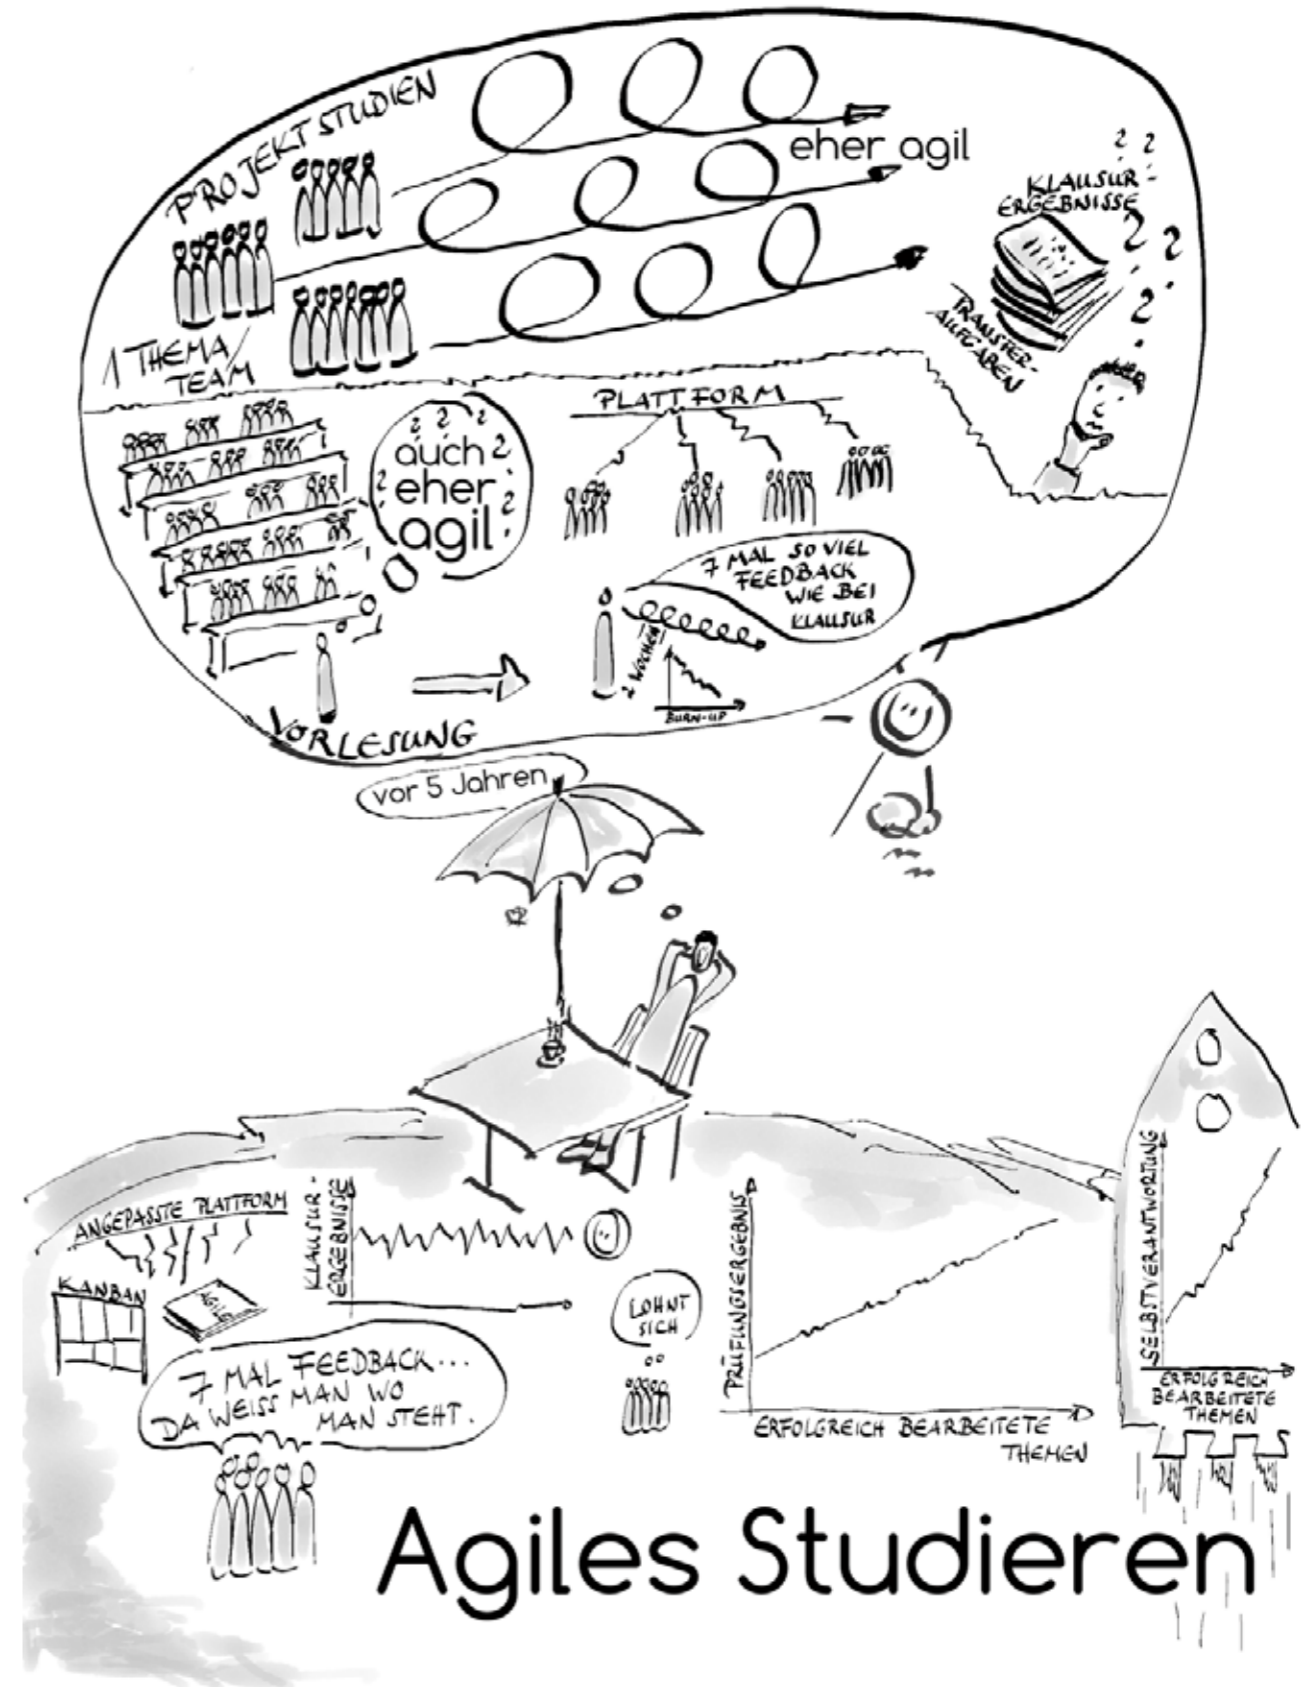 PROJEKT STUDIEN
eher agil
KLAUSUR-
ERGEBNISSE
TRANSFER-
AUFGABEN
1 THEMA/
TEAM
auch
eher
agil
PLATTFORM
7 MAL SO VIEL
FEEDBACK
WIE BEI
KLAUSUR
2 WOCHEN
BURN-UP
VORLESUNG
vor 5 Jahren
ANGEPASSTE PLATTFORM
KANBAN
AGILE
KLAUSUR-
ERGEBNISSE
7 MAL FEEDBACK...
DA WEISS MAN WO
MAN STEHT.
LOHNT
SICH
PRÜFUNGSERGEBNIS
ERFOLGREICH BEARBEITETE
THEMEN
SELBSTVERANTWORTUNG
ERFOLGREICH
BEARBEITETE
THEMEN
Agiles Studieren